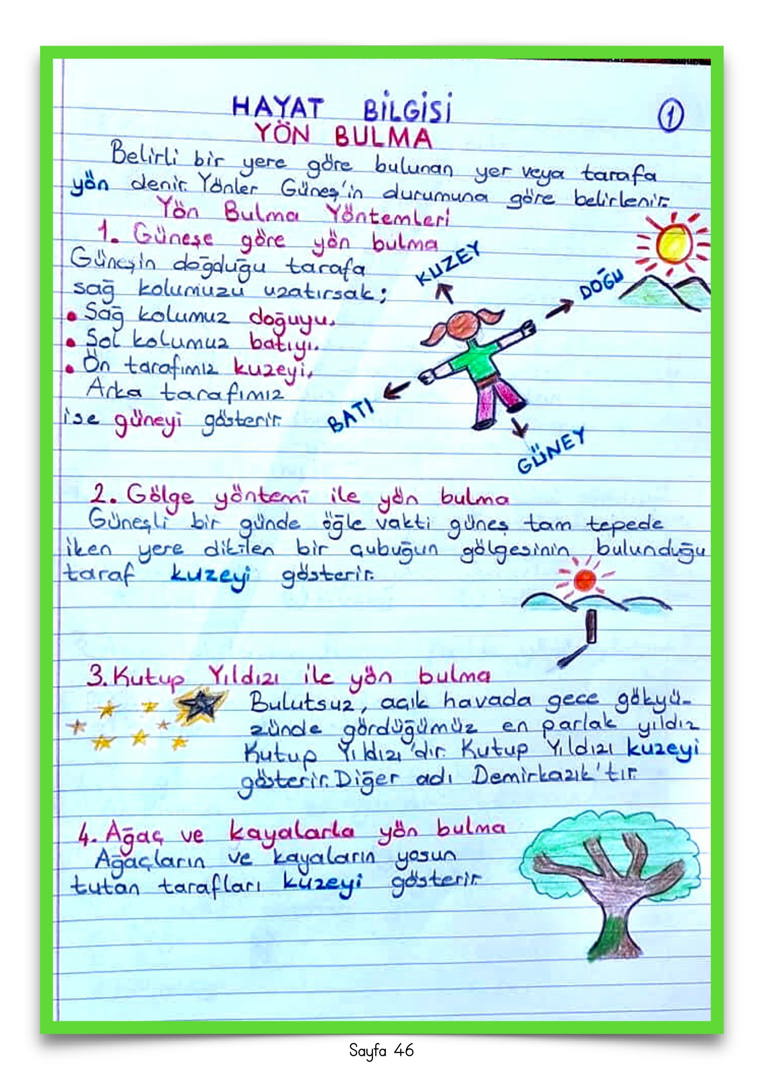 HAYAT BİLGİSİ
1
YÖN BULMA
Belirli bir yere göre bulunan yer veya tarafa
yön denir. Yönler Güneş'in durumuna göre belirlenir.
Yön Bulma Yöntemleri
1. Güneşe göre yön bulma
Güneşin doğduğu tarafa
sağ kolumuzu uzatırsak;
• Sağ kolumuz doğuyu.
• Sol kolumuz batıyı.
• Ön tarafımız kuzeyi.
Arka tarafımız
ise güneyi gösterir.
KUZEY
DOĞU
BATI
GÜNEY
2. Gölge yöntemi ile yön bulma
Güneşli bir günde öğle vakti güneş tam tepede
iken yere dikilen bir çubuğun gölgesinin bulunduğu
taraf kuzeyi gösterir.
3. Kutup Yıldızı ile yön bulma
Bulutsuz, açık havada gece gökyü-
zünde gördüğümüz en parlak yıldız
Kutup Yıldızı'dır. Kutup Yıldızı kuzeyi
gösterir. Diğer adı Demirkazık'tır.
4. Ağaç ve kayalarla yön bulma
Ağaçların ve kayaların yosun
tutan tarafları kuzeyi gösterir.
Sayfa 46